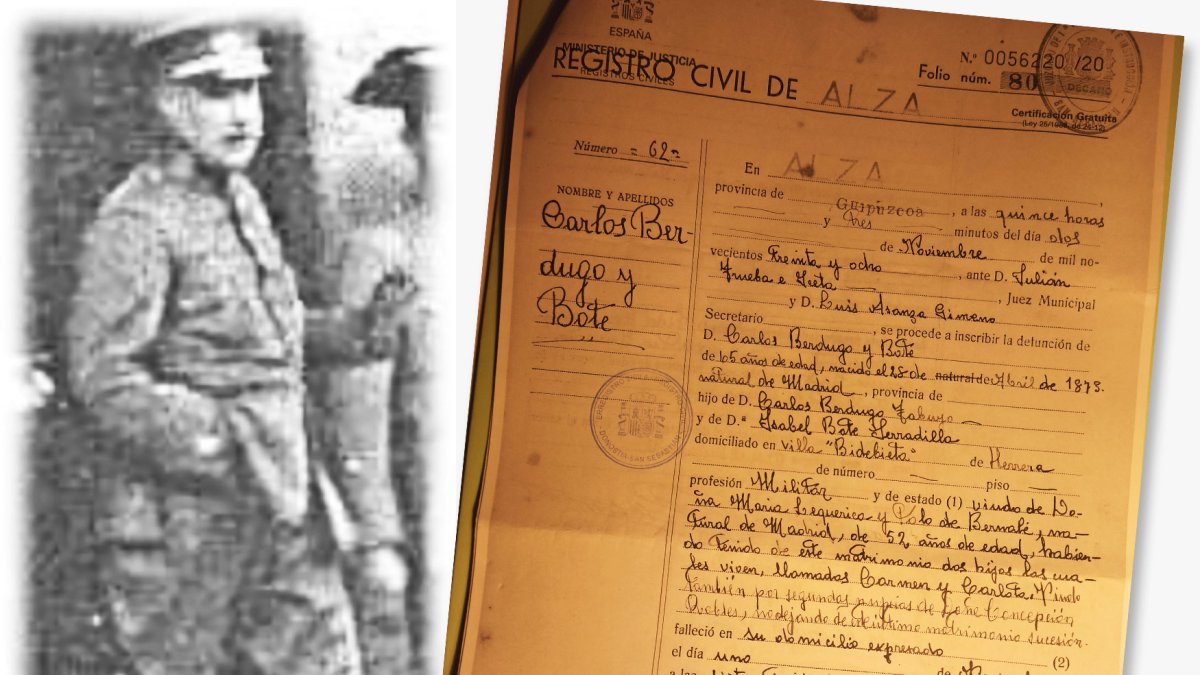 ESPAÑA
MINISTERIO DE JUSTICIA
REGISTROS CIVILES
REGISTRO CIVIL DE ALZA
N.º 0056220 /20
Folio núm. 80
DECANO
Certificación Gratuita
(Ley 25/1986, de 24-12)
Número = 62 =
NOMBRE Y APELLIDOS
Carlos Ber-
dugo y
Bote
En ALZA,
provincia de
Guipúzcoa, a las quince horas
y tres minutos del día dos
de Noviembre de mil no-
vecientos treinta y ocho, ante D. Julián
Trueba e, Juez Municipal
y D. Luis Asanza Gimeno
Secretario, se procede a inscribir la defunción de
D. Carlos Berdugo y Bote
de 65 años de edad, nacido el 28 de natural de Abril de 1873.
natural de Madrid, provincia de
hijo de D. Carlos Berdugo
y de D.ª Isabel Bote Serradilla
domiciliado en villa "Bidebieta" de Herrera
de número piso
profesión Militar y de estado (1) viudo de Do-
ña Maria Lequerica y Polo de Bernabé, na-
tural de Madrid, de 52 años de edad, habien-
do tenido de este matrimonio dos hijos las cua-
les viven, llamadas Carmen y Carlota. Viudo
también por segundas nupcias de Concepción
Robles, no dejando de este último matrimonio sucesión.
falleció en su domicilio expresado (2)
el día uno de
DONOSTIA-SAN SEBASTIAN